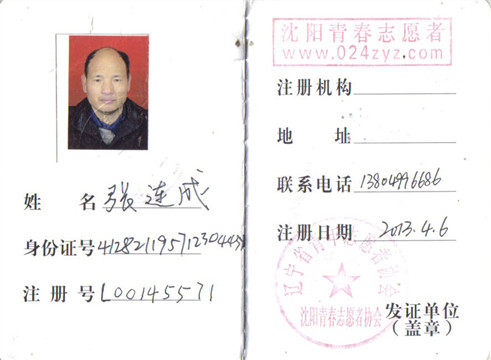 姓 名 张连成
身份证号
注册号 L00145571
沈阳青春志愿者
www.024zyz.com
注册机构
地 址
联系电话 13804996686
注册日期 2013.4.6
沈阳青春志愿者协会
发证单位
(盖章)